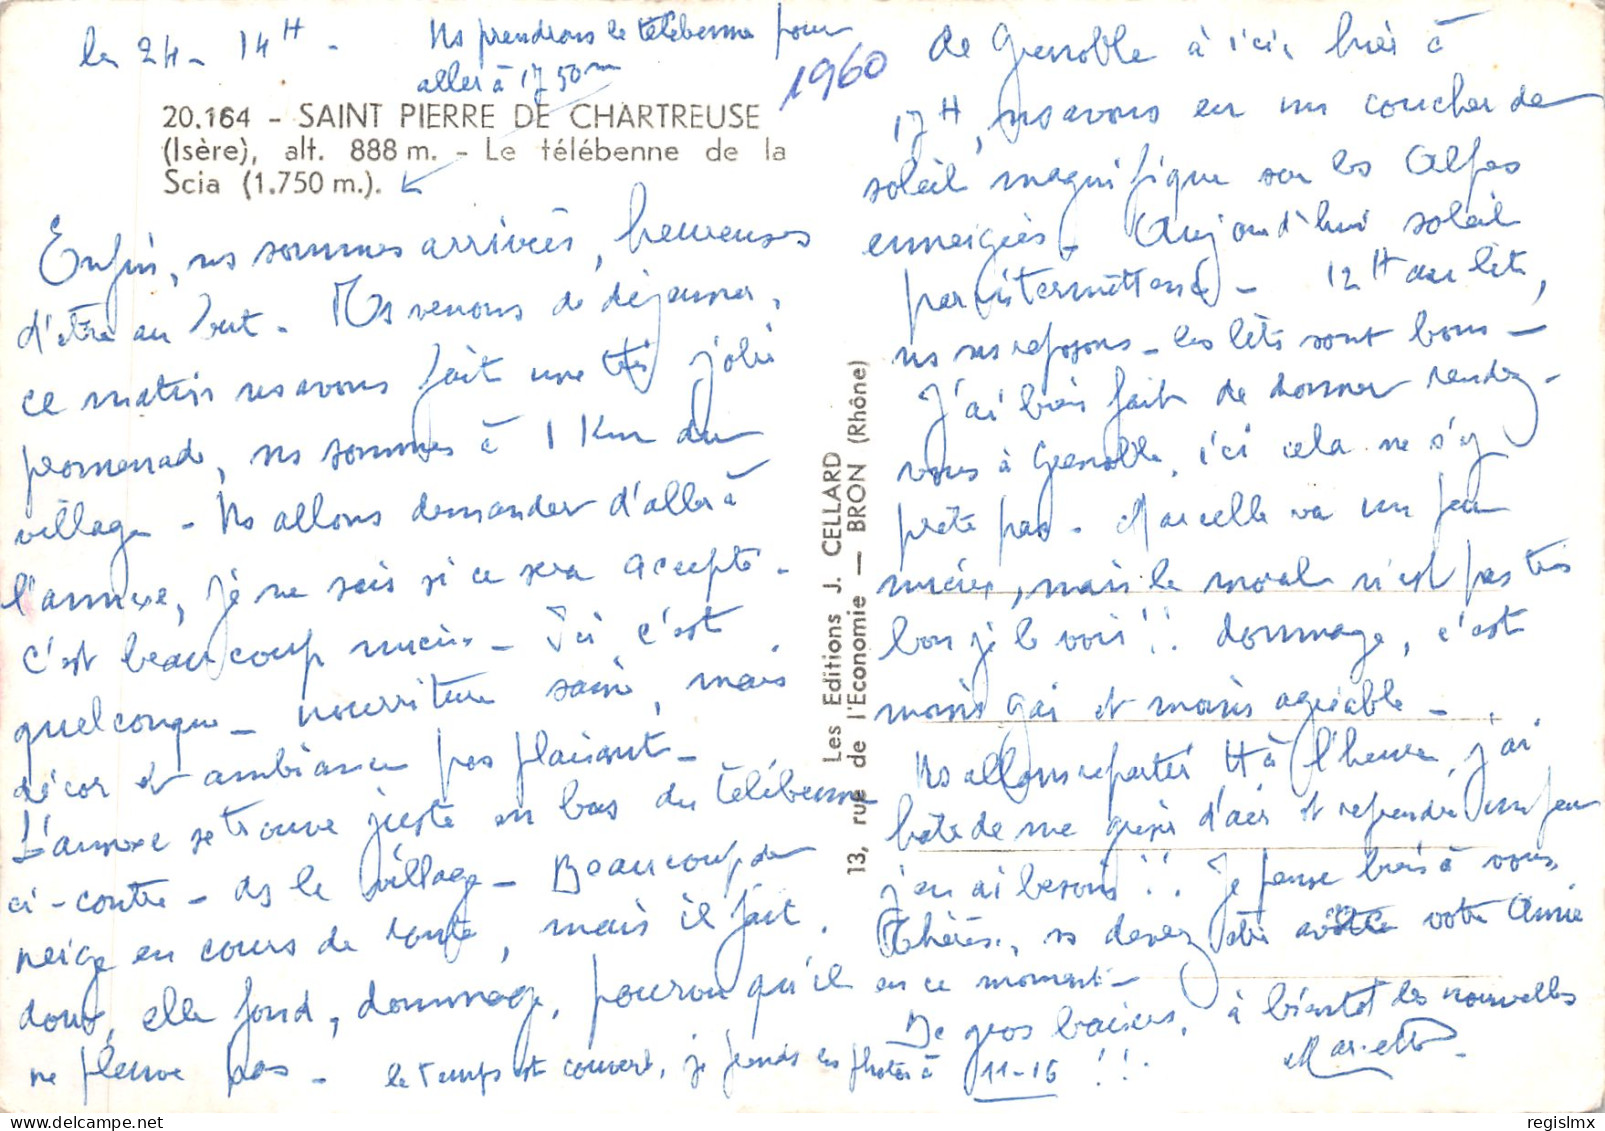 le 24 - 14H -
Ns prendrons le télébenne pour
aller à 1750m
1960
20.164 - SAINT PIERRE DE CHARTREUSE
(Isère), alt. 888 m. - Le télébenne de la
Scia (1.750 m.).
Enfin, ns sommes arrivées, heureuses
d'être au but - Ns venons de déjeuner,
ce matin ns avons fait une très jolie
promenade, ns sommes à 1 Km du
village - Ns allons demander d'aller à
l'annexe, je ne sais si ce sera accepté -
c'est beaucoup mieux - Ici c'est
quelconque - nourriture saine, mais
décor et ambiance pas plaisant -
L'annexe se trouve juste en bas du télébenne
ci-contre - ds le village - Beaucoup de
neige en cours de route, mais il fait
doux, elle fond, dommage, pourvu qu'il
ne pleuve pas - le temps est couvert, je prends les photos à 11-16 !!!
Les Editions J. CELLARD
13, rue de l'Economie — BRON (Rhône)
de Grenoble à ici, hier à
17H, ns avons eu un coucher de
soleil magnifique sur les Alpes
enneigées - Aujourd'hui soleil
par intermittence - 12H au lit,
ns ns reposons - les lits sont bons -
J'ai bien fait de donner rendez-
vous à Grenoble, ici cela ne s'y
prête pas - Marcelle va un peu
mieux, mais le moral n'est pas très
bon je le vois !! dommage, c'est
moins gai et moins agréable -
Ns allons repartir H à l'heure, j'ai
hâte de me griser d'air et reprendre un peu
j'en ai besoin !! Je pense bien à vous
Thérèse, vs devez être avec votre Amie
en ce moment -
De gros baisers, à bientôt des nouvelles
Mariette
regislmx